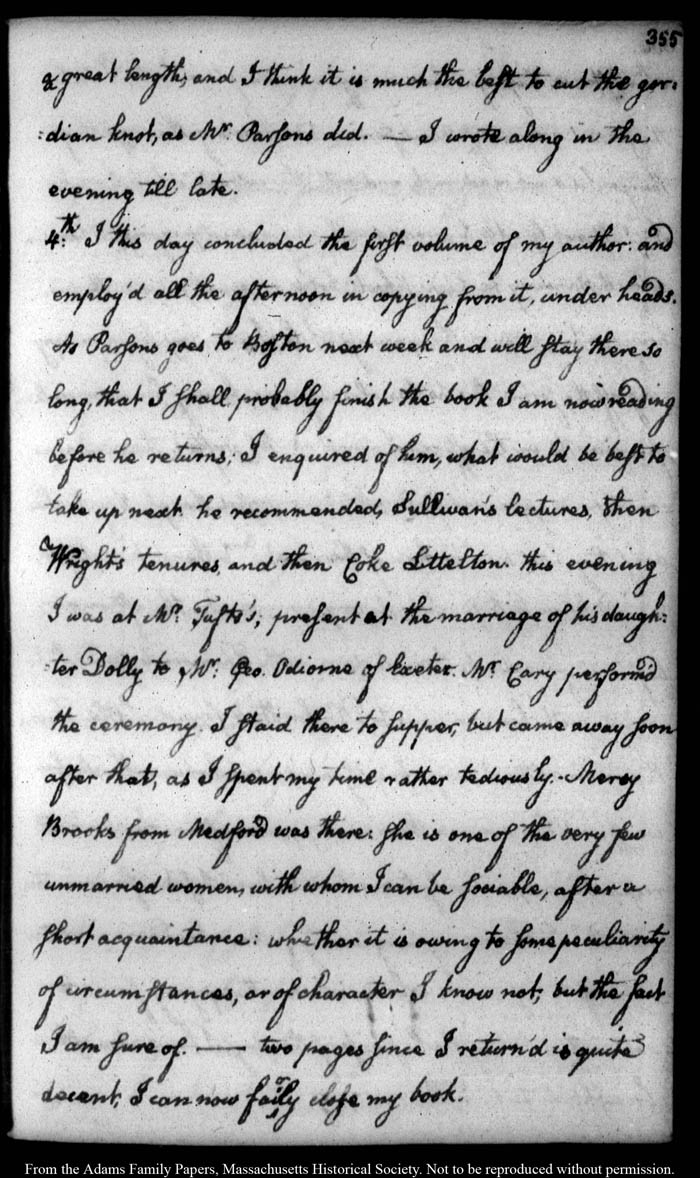 355
& great length; and I think it is much the best to cut the gor:
:dian knot, as Mr. Parsons did. — I wrote along in the
evening till late.
4:th I this day concluded the first volume of my author: and
employ'd all the afternoon in copying from it, under heads.
As Parsons goes to Boston next week and will stay there so
long, that I shall probably finish the book I am now reading
before he returns; I enquired of him, what would be best to
take up next. he recommended, Sullivan's lectures, then
Wright's tenures, and then Coke Littelton. this evening
I was at Mr. Tufts's; present at the marriage of his daugh:
ter Dolly to Mr. Geo. Odiorne of Exeter. Mr. Cary perform'd
the ceremony. I staid there to supper, but came away soon
after that, as I spent my time rather tediously.- Mercy
Brooks from Medford was there: she is one of the very few
unmarried women, with whom I can be sociable, after a
short acquaintance: whether it is owing to some peculiarity
of circumstances, or of character I know not; but the fact
I am sure of. — two pages since I return'd is quite
decent, I can now fairly close my book.
From the Adams Family Papers, Massachusetts Historical Society. Not to be reproduced without permission.